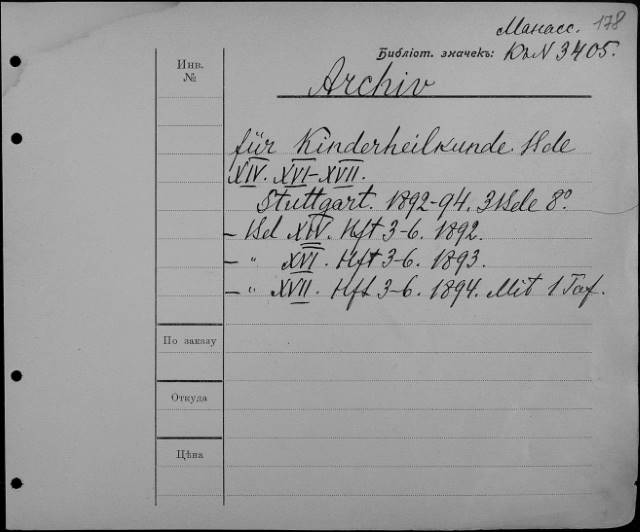 Манасс. 178
Библіот. значекъ: КъN 3405.
Инв.
№
Archiv
für Kinderheilkunde. Bde
XIV. XVI-XVII.
Stuttgart. 1892-94. 3 Bde 8º.
- Bd XIV. Hft 3-6. 1892.
- " XVI. Hft 3-6. 1893.
- " XVII. Hft 3-6. 1894. Mit 1 Taf.
По заказу
Откуда
Цѣна